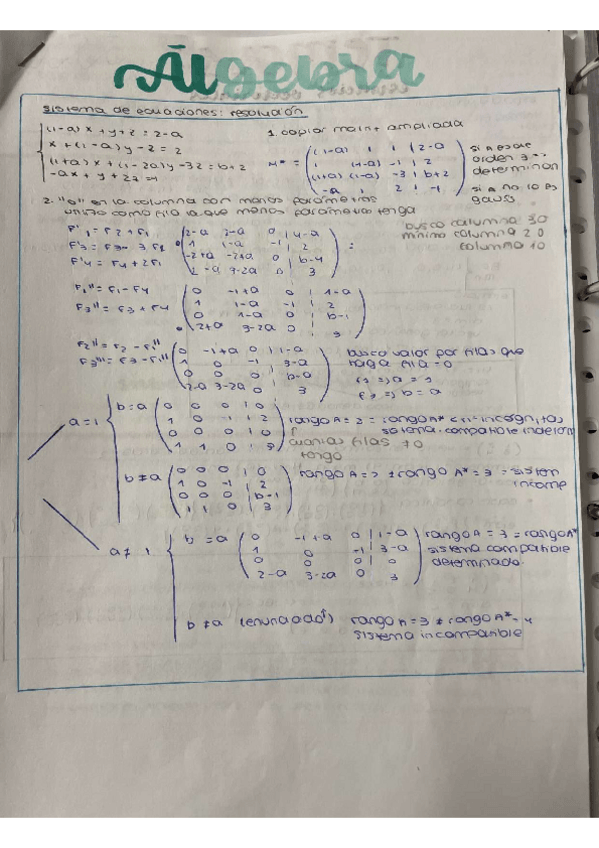 Álgebra
sistema de ecuaciones: resolución
(1-a)x + y + z = 2-a
x + (1-a)y - z = 2
(1+a)x + (1-2a)y - 3z = b+2
-ax + y + 2z = -1
1. copiar matriz ampliada
M* = ( (1-a) 1 1 | 2-a
1 (1-a) -1 | 2
(1+a) (1-2a) -3 | b+2
-a 1 2 | -1 )
orden 3
determinan
si no lo es
gauss
2. "0" en la columna con menos parámetros
utilizo como fila la que menos parámetros tenga
busco columna 3 0
mínimo columna 2 0
columna 1 0
F'1 = F2 + F1
F'3 = F3 - 3F2
F'4 = F4 + 2F1
2-a 2-a 0 | 4-a
1 1-a -1 | 2
-2+a -2+a 0 | b-4
2-a 3-2a 0 | 3
F1'' = F1 - F4
F3'' = F3 + F4
0 -1+a 0 | 1-a
1 1-a -1 | 2
0 1-a 0 | b-1
2+a 3-2a 0 | 3
F2''' = F2 - F1''
F3''' = F3 - F1''
0 -1+a 0 | 1-a
1 0 -1 | 3-a
0 0 0 | b-a
2-a 3-2a 0 | 3
busco valor por filas que
haga fila = 0
F1 => a = 1
F3 => b = a
a = 1
b = a
0 0 0 | 0
1 0 -1 | 2
0 0 0 | 0
1 1 0 | 3
rango A = 2 = rango A* < n° incógnitas
sistema compatible indeterm
cuantas filas ≠ 0
tengo
b ≠ a
0 0 0 | 0
1 0 -1 | 2
0 0 0 | b-1
1 1 0 | 3
rango A = 2 ≠ rango A* = 3 = sistem
incomp
a ≠ 1
b = a
0 -1+a 0 | 1-a
1 0 -1 | 3-a
0 0 0 | 0
2-a 3-2a 0 3
rango A = 3 = rango A*
sistema compatible
determinado.
b ≠ a (enunciado↑) rango A = 3 ≠ rango A* = 4
sistema incompatible